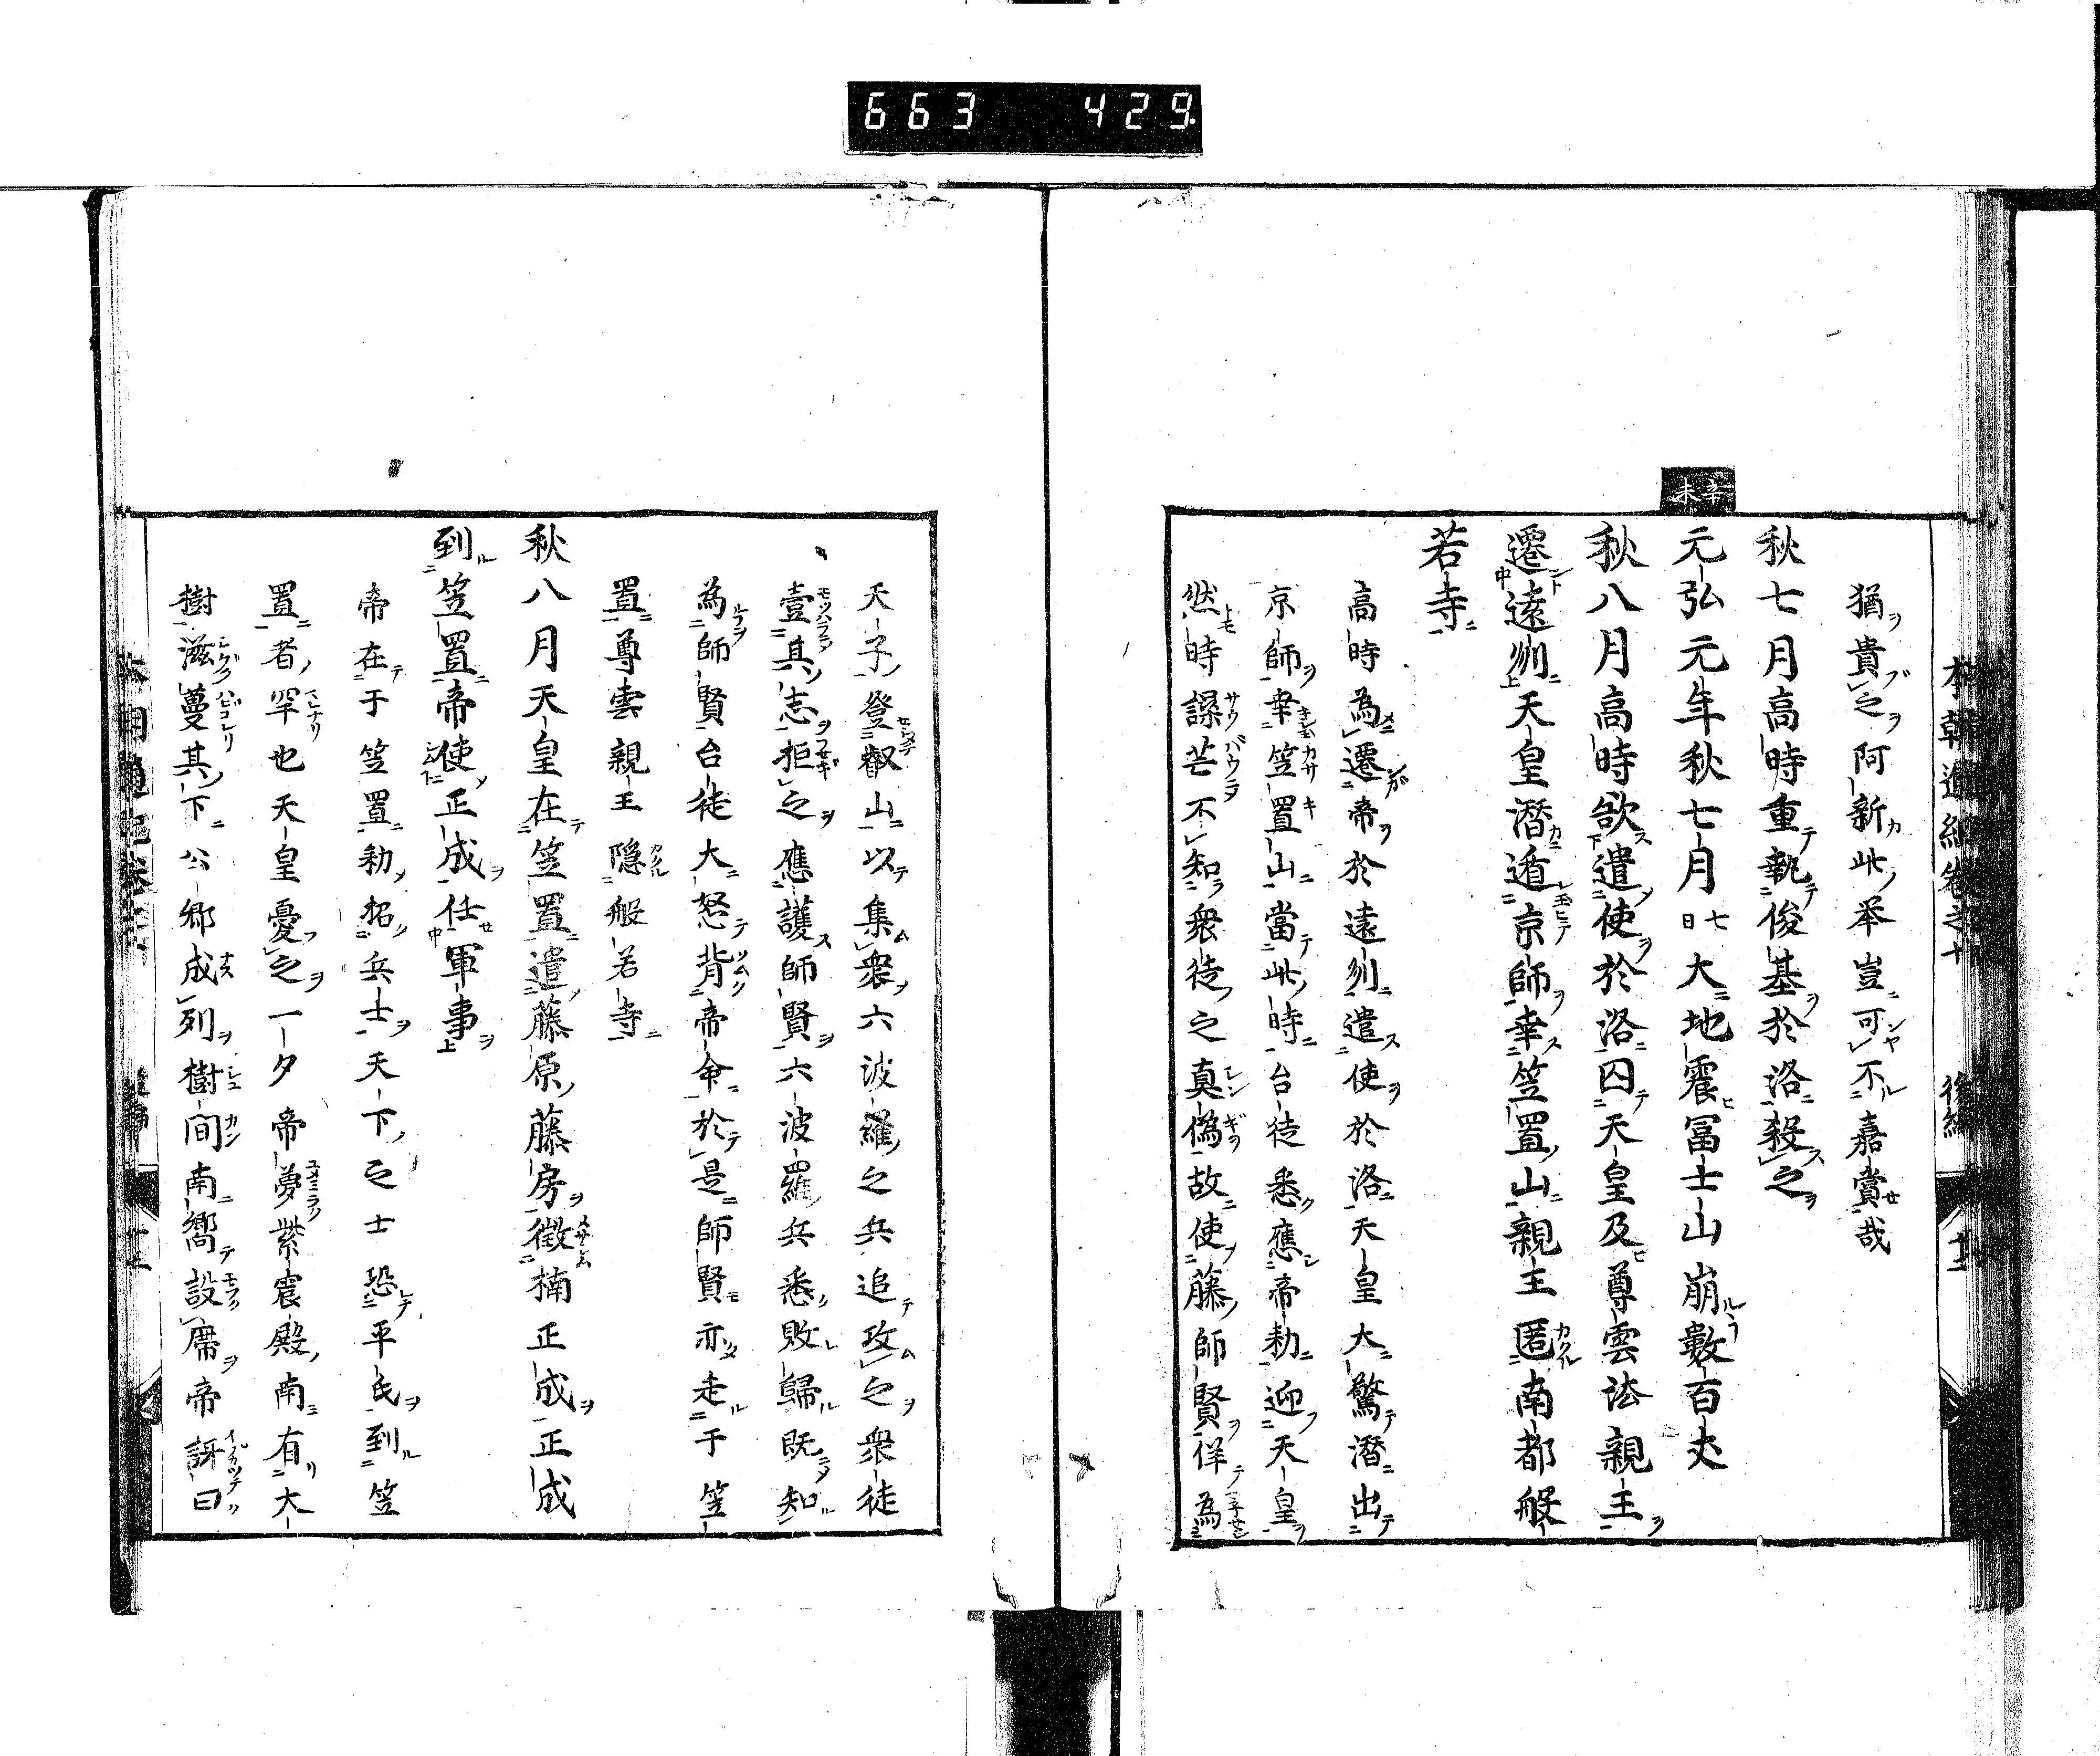 663 429
辛未
猶貴之阿新此舉豈可不嘉賞哉
秋七月高時重執俊基於洛殺之
元弘元年秋七月七日大地震冨士山崩數百丈
秋八月高時欲遣使於洛囚天皇及尊雲法親王
遷遠州天皇潛遁京師幸笠置山親王匿南都般
若寺
高時為遷帝於遠州遣使於洛天皇大驚潛出
京師幸笠置山當此時台徒悉應帝勅迎天皇
然時譟芒不知衆徒之真偽故使藤師賢佯為
天子登叡山以集衆六波羅之兵追攻之衆徒
壹其志拒之應護師賢六波羅兵悉敗歸既知
為師賢台徒大怒背帝命於是師賢亦走于笠
置尊雲親王隠般若寺
秋八月天皇在笠置遣藤原藤房徵楠正成正成
到笠置帝使正成任軍事
帝在于笠置勅招兵士天下之士恐平氏到笠
置者罕也天皇憂之一夕帝夢紫宸殿南有大
樹滋蔓其下公卿成列樹間南嚮設席帝訝曰